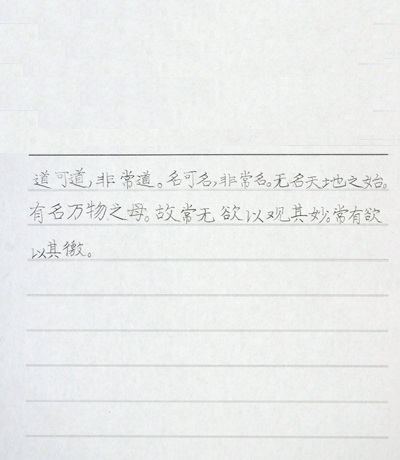 道可道,非常道。名可名,非常名。无名天地之始。
有名万物之母。故常无欲以观其妙。常有欲
以其徼。